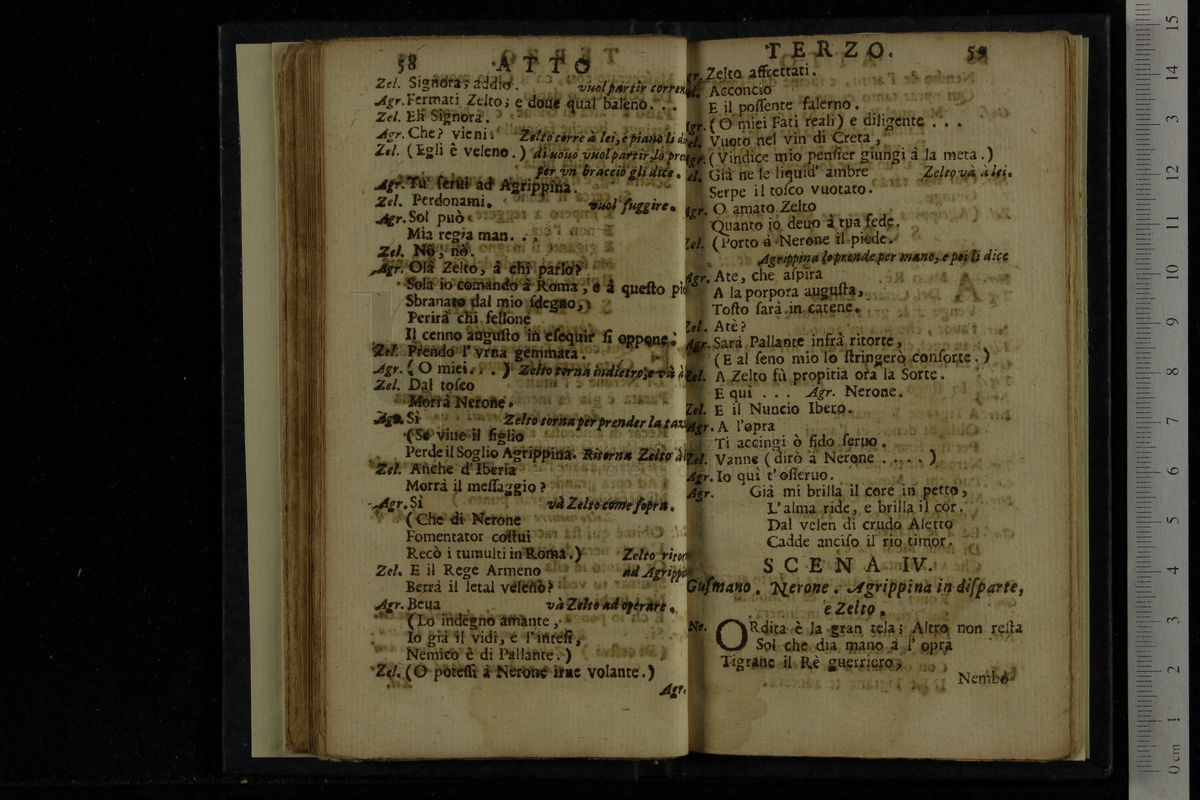 58 ATTO
Zel. Signora; addio. vuol partir corren
Agr. Fermati Zelto; e doue qual baleno. . .
Zel. Eh Signora.
Agr. Che? vieni. Zelto corre à lei, e piano li di
Zel. (Egli è veleno.) di nouo vuol partir, lo pren
per vn braccio gli dice.
Agr. Tu serui ad Agrippina.
Zel. Perdonami. vuol fuggire.
Agr. Sol può
Mia regia man. . .
Zel. Nò, nò.
Agr. Olà Zelto, à chi parlo?
Sola io comando à Roma, e à questo piè
Sbranato dal mio sdegno,
Perirà chi fellone
Il cenno augusto in esequir si oppone.
Zel. Prendo l'vrna gemmata.
Agr. (O miei. . . ) Zelto torna indietro, e và à
Zel. Dal tosco
Morrà Nerone.
Agr. Sì Zelto torna per prender la taz
(Se viue il figlio
Perde il Soglio Agrippina. Ritorna Zelto à
Zel. Anche d'Iberia
Morrà il messaggio?
Agr. Sì và Zelto come sopra.
(Che di Nerone
Fomentator costui
Recò i tumulti in Roma.) Zelto ritor
Zel. E il Rege Armeno ad Agrippi
Berrà il letal veleno?
Agr. Beua và Zelto ad operare.
(Lo indegno amante,
Io già il vidi, e l'intesi,
Nemico è di Pallante.)
Zel. (O potessi à Nerone irne volante.)
Agr.
TERZO. 59
gr. Zelto affrettati.
el. Acconcio
E il possente falerno.
Agr. (O miei Fati reali) e diligente . . .
el. Vuoto nel vin di Creta,
Agr. (Vindice mio pensier giungi à la meta.)
el. Già ne le liquid' ambre Zelto và à lei.
Serpe il tosco vuotato.
Agr. O amato Zelto
Quanto io deuo à tua fede.
Zel. (Porto à Nerone il piede.
Agrippina lo prende per mano, e poi li dice
Agr. Ate, che aspira
A la porpora augusta,
Tosto sarà in catene.
Zel. Atè?
Agr. Sarà Pallante infrà ritorte,
(E al seno mio lo stringerò consorte.)
Zel. A Zelto fù propitia ora la Sorte.
E quì . . . Agr. Nerone.
Zel. E il Nuncio Ibero.
Agr. A l'opra
Ti accingi ò fido seruo.
Zel. Vanne (dirò à Nerone . . . . . )
Agr. Io quì t'osseruo.
Agr. Già mi brilla il core in petto,
L'alma ride, e brilla il cor.
Dal velen di crudo Aletto
Cadde anciso il rio timor.
SCENA IV.
Gusmano. Nerone. Agrippina in disparte,
e Zelto.
Ne. ORdita è la gran tela; Altro non resta
Sol che dia mano a l'opra
Tigrane il Rè guerriero,
Nembo